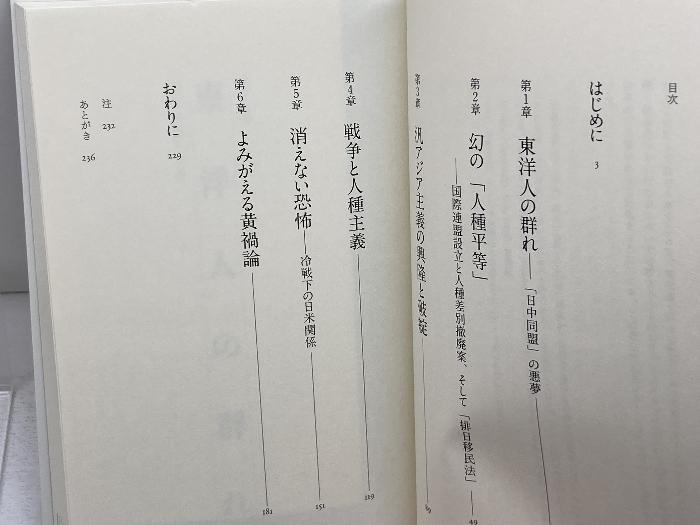 目次
はじめに 3
第1章 東洋人の群れ——「日中同盟」の悪夢
第2章 幻の「人種平等」
——国際連盟設立と人種差別撤廃案、そして「排日移民法」 49
第3章 汎アジア主義の興隆と破綻 89
第4章 戦争と人種主義 119
第5章 消えない恐怖——冷戦下の日米関係 151
第6章 よみがえる黄禍論 181
おわりに 229
注 232
あとがき 236